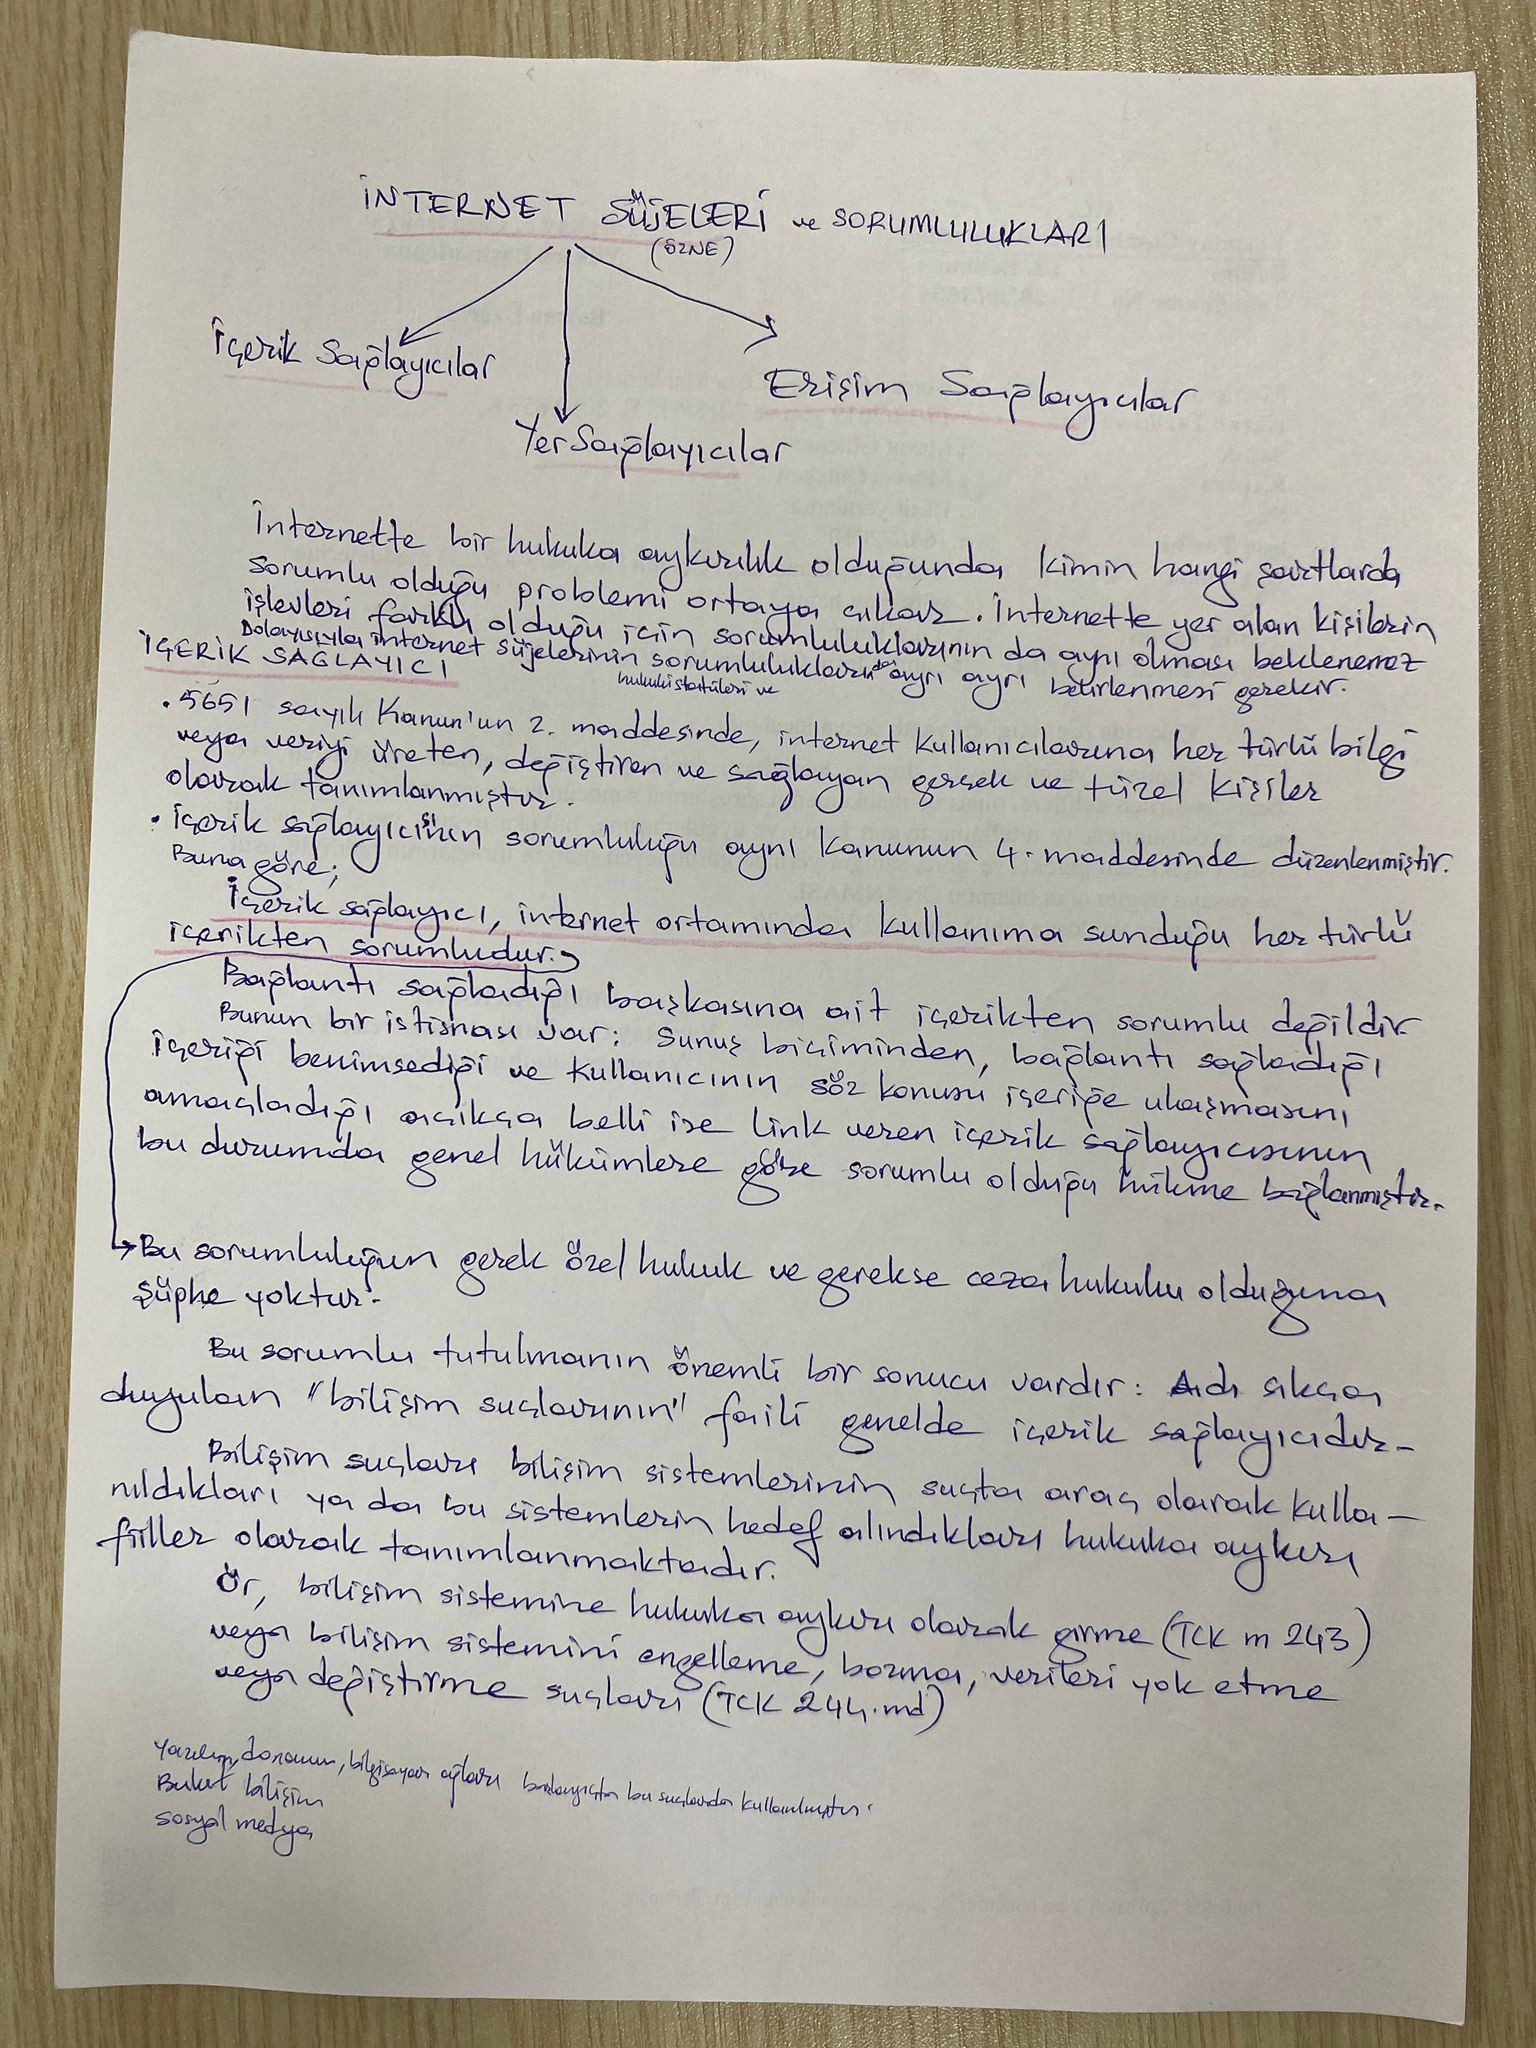 İNTERNET SÜJELERİ ve SORUMLULUKLARI
(ÖZNE)
İçerik Sağlayıcılar
Erişim Sağlayıcılar
Yer Sağlayıcılar
İnternette bir hukuka aykırılık olduğunda kimin hangi şartlarda
sorumlu olduğu problemi ortaya çıkar. İnternette yer alan kişilerin
işlevleri farklı olduğu için sorumluluklarının da aynı olması beklenemez
Dolayısıyla internet süjelerinin hukuki statüleri ve sorumlulukların da ayrı ayrı belirlenmesi gerekir.
İÇERİK SAĞLAYICI
• 5651 sayılı Kanun'un 2. maddesinde, internet kullanıcılarına her türlü bilgi
veya veriyi üreten, değiştiren ve sağlayan gerçek ve tüzel kişiler
olarak tanımlanmıştır.
• İçerik sağlayıcısının sorumluluğu aynı kanunun 4. maddesinde düzenlenmiştir.
Buna göre;
İçerik sağlayıcı, internet ortamında kullanıma sunduğu her türlü
içerikten sorumludur.
Bağlantı sağladığı başkasına ait içerikten sorumlu değildir
Bunun bir istisnası var: Sunuş biçiminden, bağlantı sağladığı
içeriği benimsediği ve kullanıcının söz konusu içeriğe ulaşmasını
amaçladığı açıkça belli ise link veren içerik sağlayıcısının
bu durumda genel hükümlere göre sorumlu olduğu hükme bağlanmıştır.
→ Bu sorumluluğun gerek özel hukuk ve gerekse ceza hukuku olduğuna
şüphe yoktur.
Bu sorumlu tutulmanın önemli bir sonucu vardır: Adı sıkça
duyulan "bilişim suçlarının" faili genelde içerik sağlayıcıdır.
Bilişim suçları bilişim sistemlerinin suçta araç olarak kulla-
nıldıkları ya da bu sistemlerin hedef alındıkları hukuka aykırı
fiiller olarak tanımlanmaktadır.
Ör, bilişim sistemine hukuka aykırı olarak girme (TCK m 243)
veya bilişim sistemini engelleme, bozma, verileri yok etme
veya değiştirme suçları (TCK 244.md)
Yazılım, donanım, bilgisayar ağları başlangıçta bu suçlarda kullanılmıştır.
Bulut bilişim
Sosyal medya